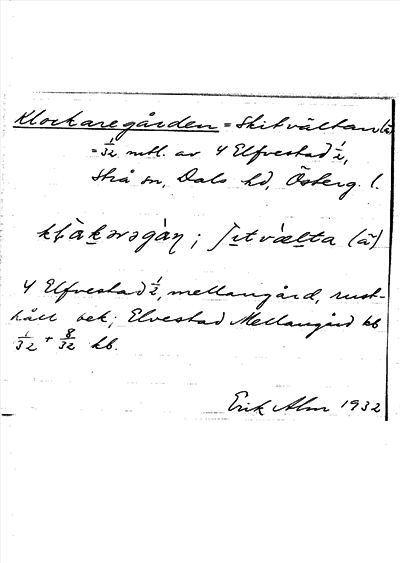 Klockaregården = Skitvältan (ä)
= 1/32 mtl. av 4 Elfvestad 1/2,
Strå sn, Dals hd, Österg. l.
4 Elfvestad 1/2, mellangård, rust-
håll bek; Elvestad Mellangård kb
1/32 + 8/32 kb.
Erik Alm 1932